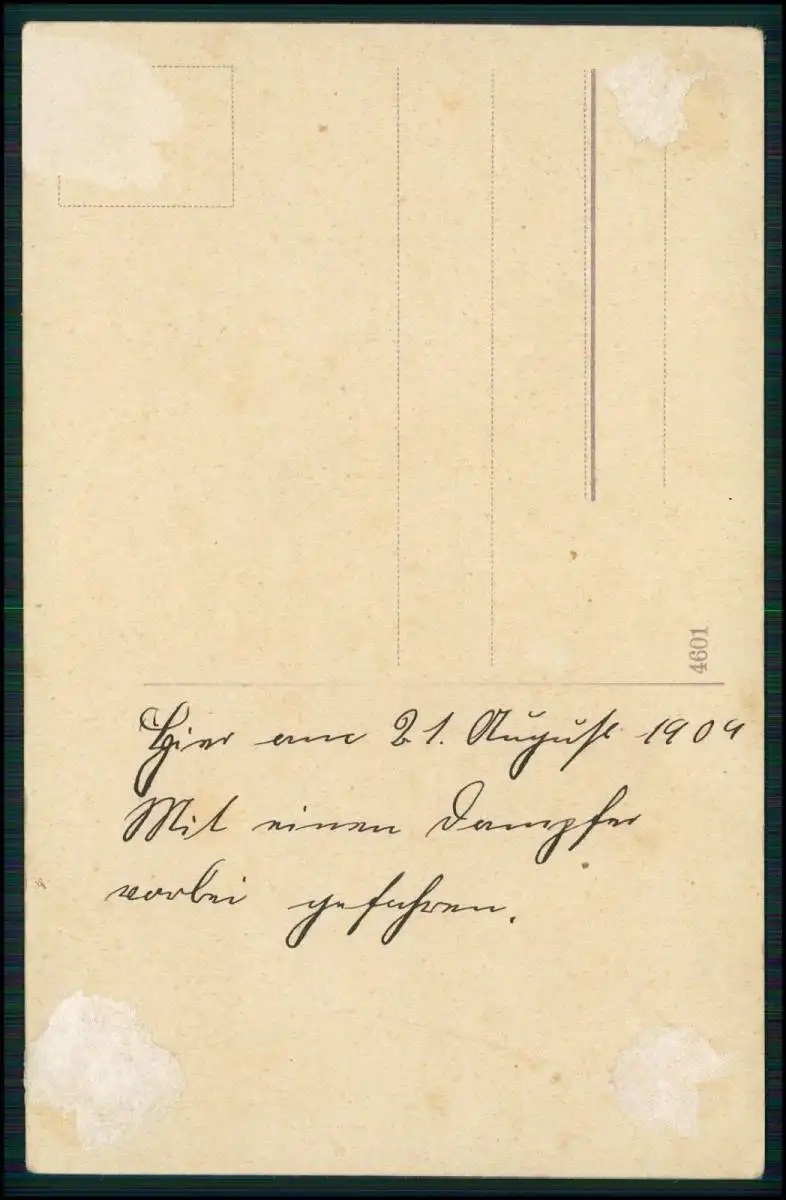 4601
Hier am 21. August 1909
Mit einen Dampfer
vorbei gefahren.